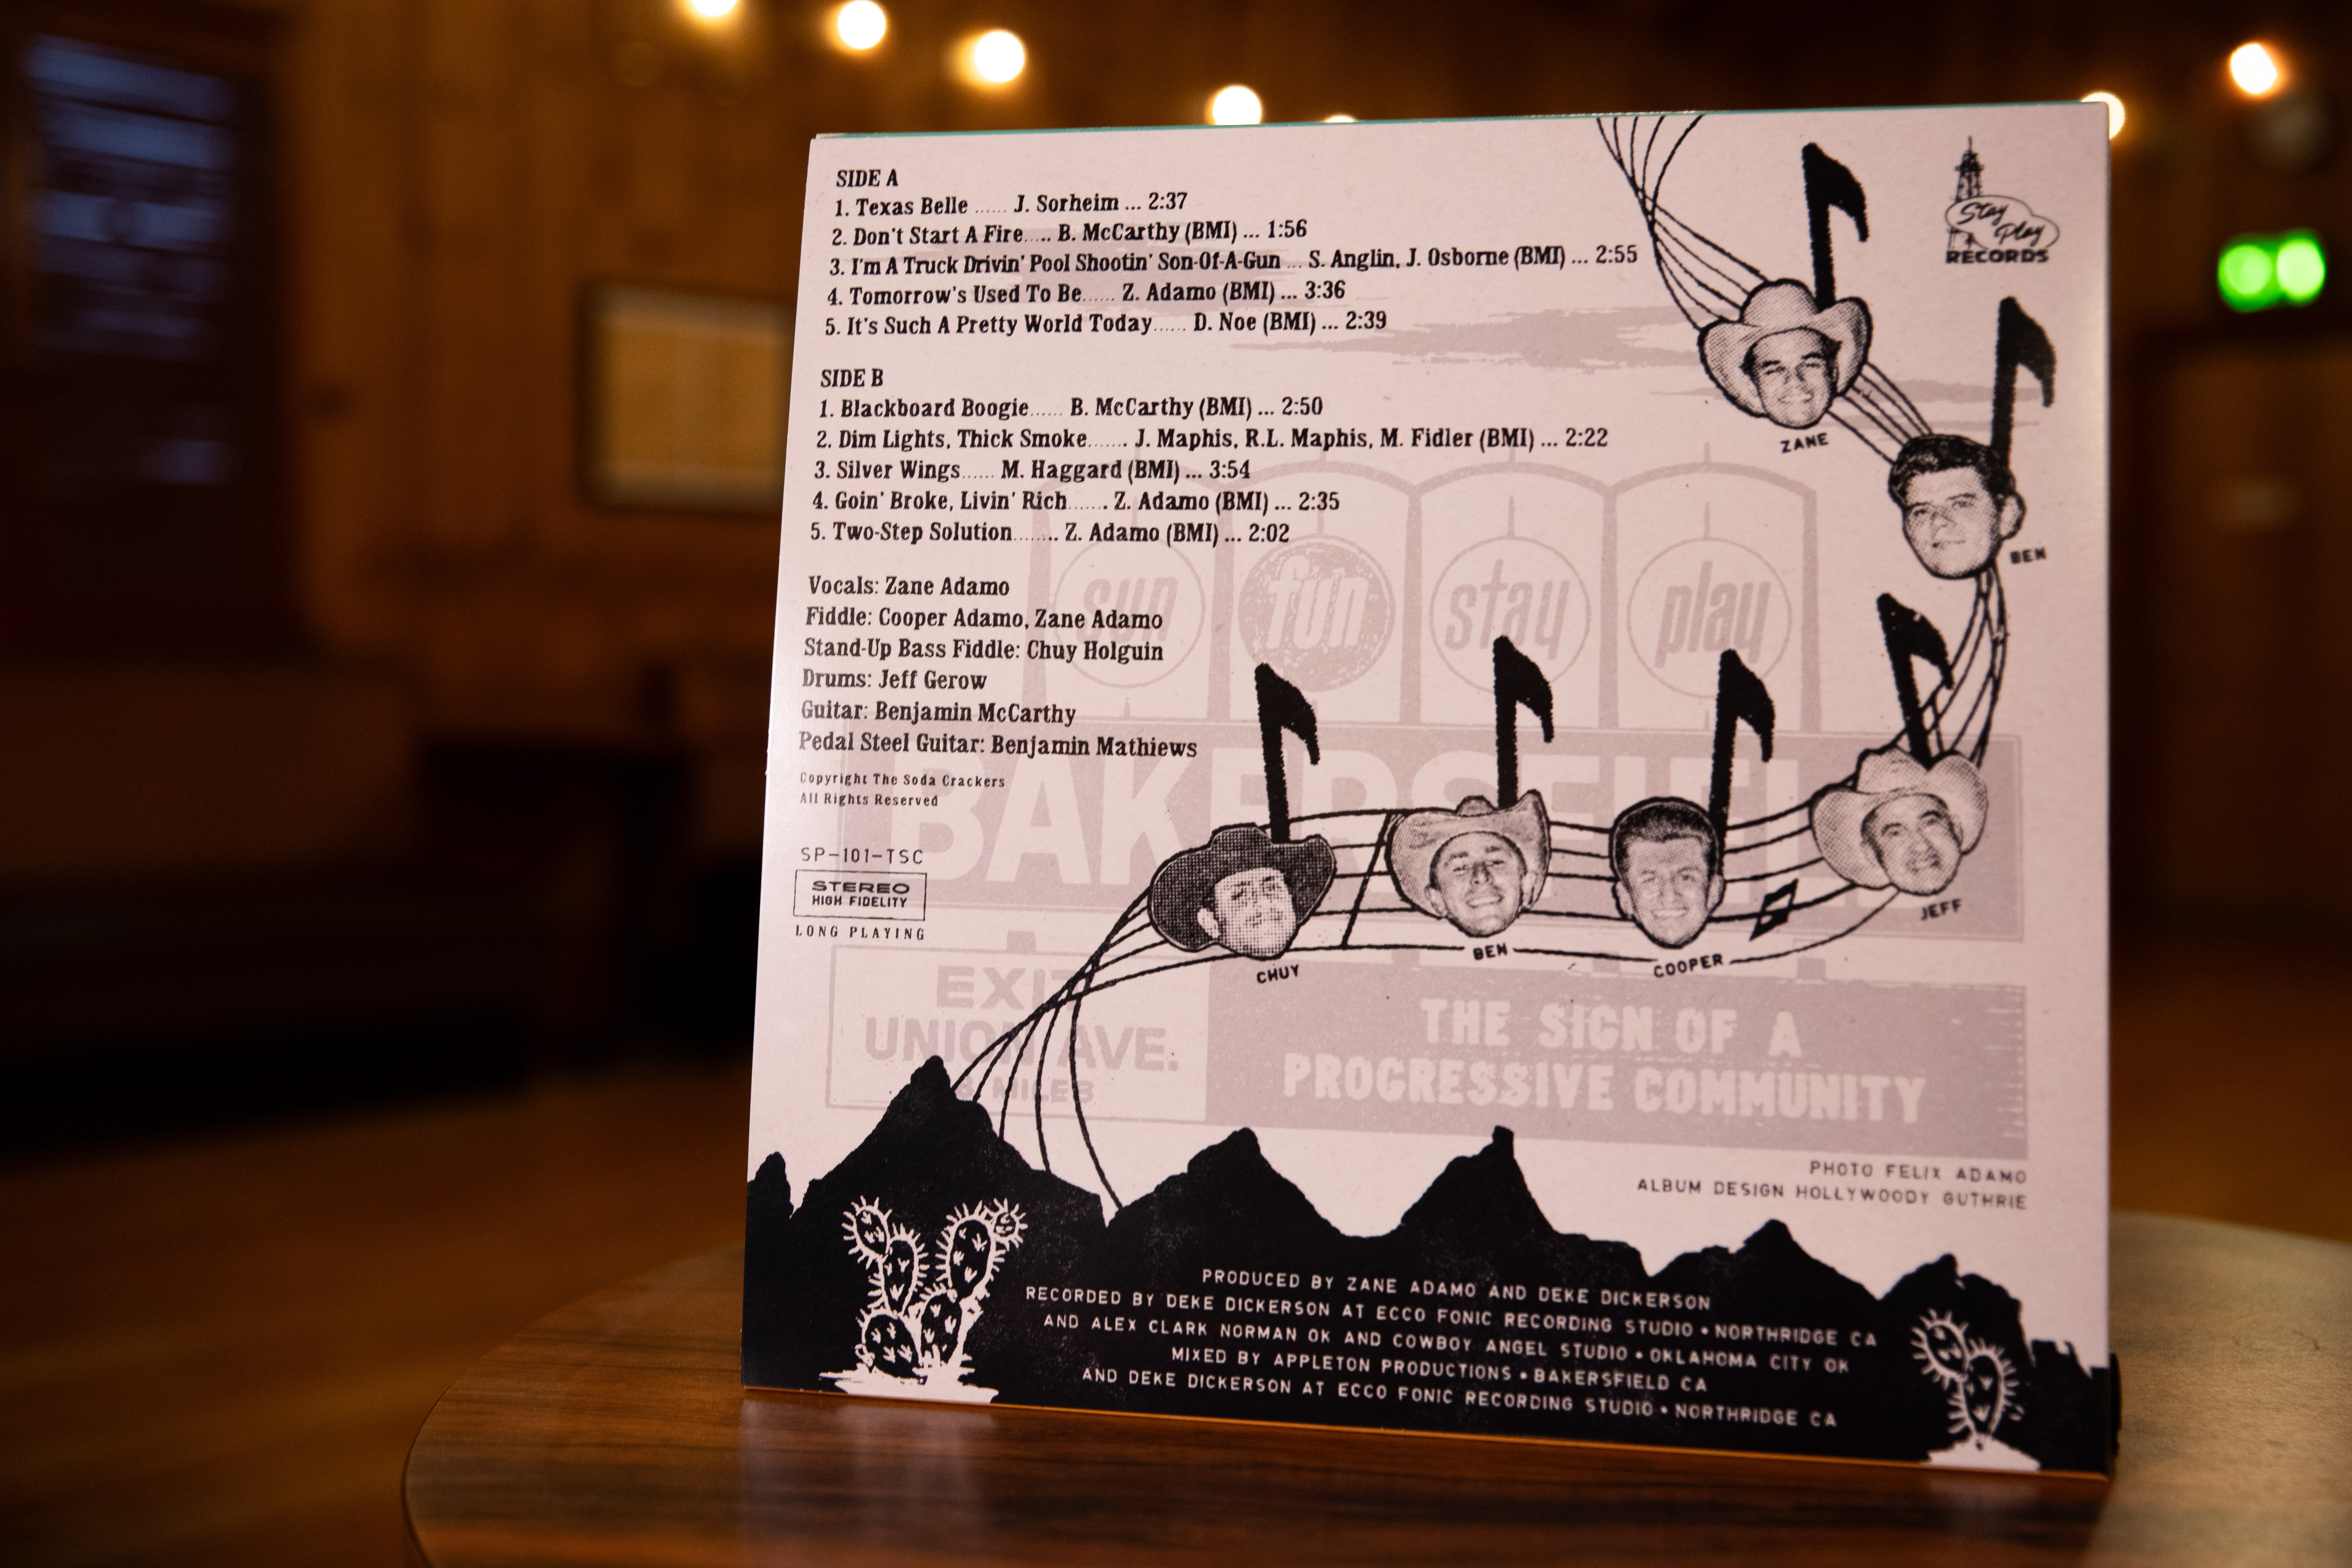 SIDE A
1. Texas Belle ...... J. Sorheim ... 2:37
2. Don't Start A Fire..... B. McCarthy (BMI) ... 1:56
3. I'm A Truck Drivin' Pool Shootin' Son-Of-A-Gun ... S. Anglin, J. Osborne (BMI) ... 2:55
4. Tomorrow's Used To Be...... Z. Adamo (BMI) ... 3:36
5. It's Such A Pretty World Today...... D. Noe (BMI) ... 2:39
SIDE B
1. Blackboard Boogie...... B. McCarthy (BMI) ... 2:50
2. Dim Lights, Thick Smoke....... J. Maphis, R.L. Maphis, M. Fidler (BMI) ... 2:22
3. Silver Wings...... M. Haggard (BMI) ... 3:54
4. Goin' Broke, Livin' Rich....... Z. Adamo (BMI) ... 2:35
5. Two-Step Solution........ Z. Adamo (BMI) ... 2:02
Vocals: Zane Adamo
Fiddle: Cooper Adamo, Zane Adamo
Stand-Up Bass Fiddle: Chuy Holguin
Drums: Jeff Gerow
Guitar: Benjamin McCarthy
Pedal Steel Guitar: Benjamin Mathiews
Copyright The Soda Crackers
All Rights Reserved
SP-101-TSC
STEREO
HIGH FIDELITY
LONG PLAYING
Stay
Play
RECORDS
ZANE
BEN
JEFF
COOPER
BEN
CHUY
sun fun stay play
BAKERSFIELD
EXIT
UNION AVE.
MILES
THE SIGN OF A
PROGRESSIVE COMMUNITY
PHOTO FELIX ADAMO
ALBUM DESIGN HOLLYWOODY GUTHRIE
PRODUCED BY ZANE ADAMO AND DEKE DICKERSON
RECORDED BY DEKE DICKERSON AT ECCO FONIC RECORDING STUDIO • NORTHRIDGE CA
AND ALEX CLARK NORMAN OK AND COWBOY ANGEL STUDIO • OKLAHOMA CITY OK
MIXED BY APPLETON PRODUCTIONS • BAKERSFIELD CA
AND DEKE DICKERSON AT ECCO FONIC RECORDING STUDIO • NORTHRIDGE CA